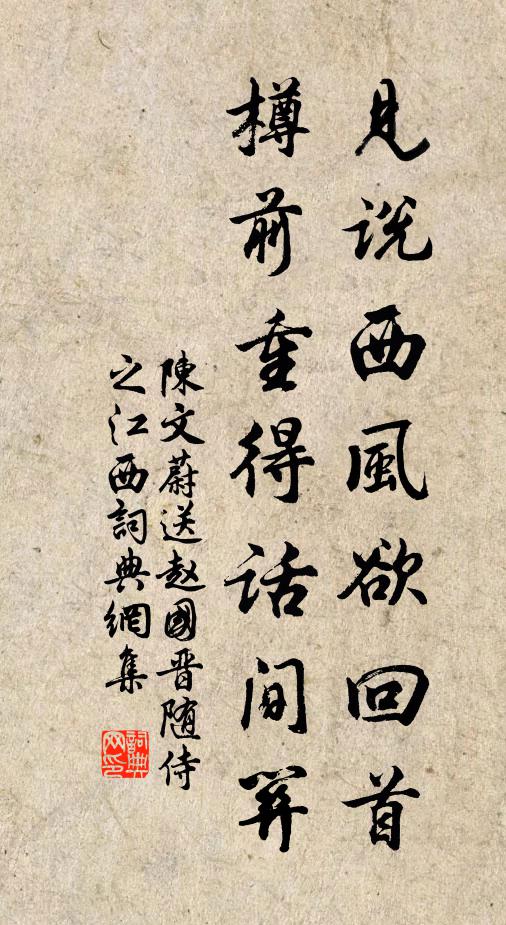 見説西風欲回首
樽前重得話間關
陳文蔚送赵國晋随侍
之江西詞典網集
詞典
网印